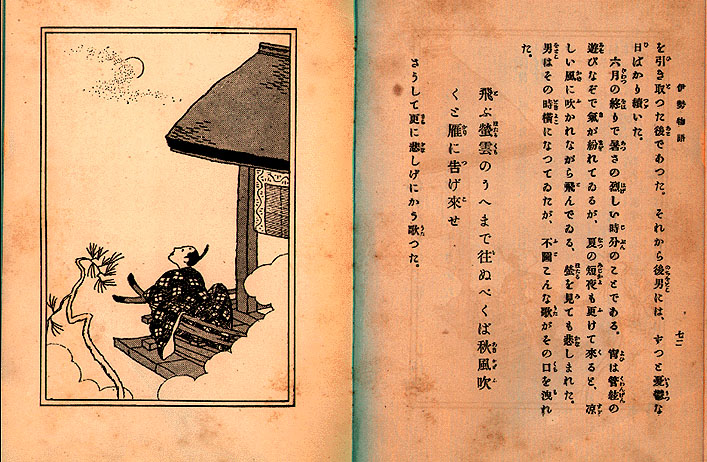 伊勢物語
七二
を引き取つた後であつた。それから後男には、ずつと憂鬱な
日ばかり續いた。
六月の終りで暑さの烈しい時分のことである。宵は管絃の
遊びなぞで氣が紛れてゐるが、夏の短夜も更けて來ると、凉
しい風に吹かれながら飛んでゐる。螢を見ても悲しまれた。
男はその時橫になつてゐたが、不圖こんな歌がその口を洩れ
た。
飛ぶ螢雲のうへまで往ぬべくば秋風吹
くと雁に吿げ來せ
さうして更に悲しげにかう歌つた。